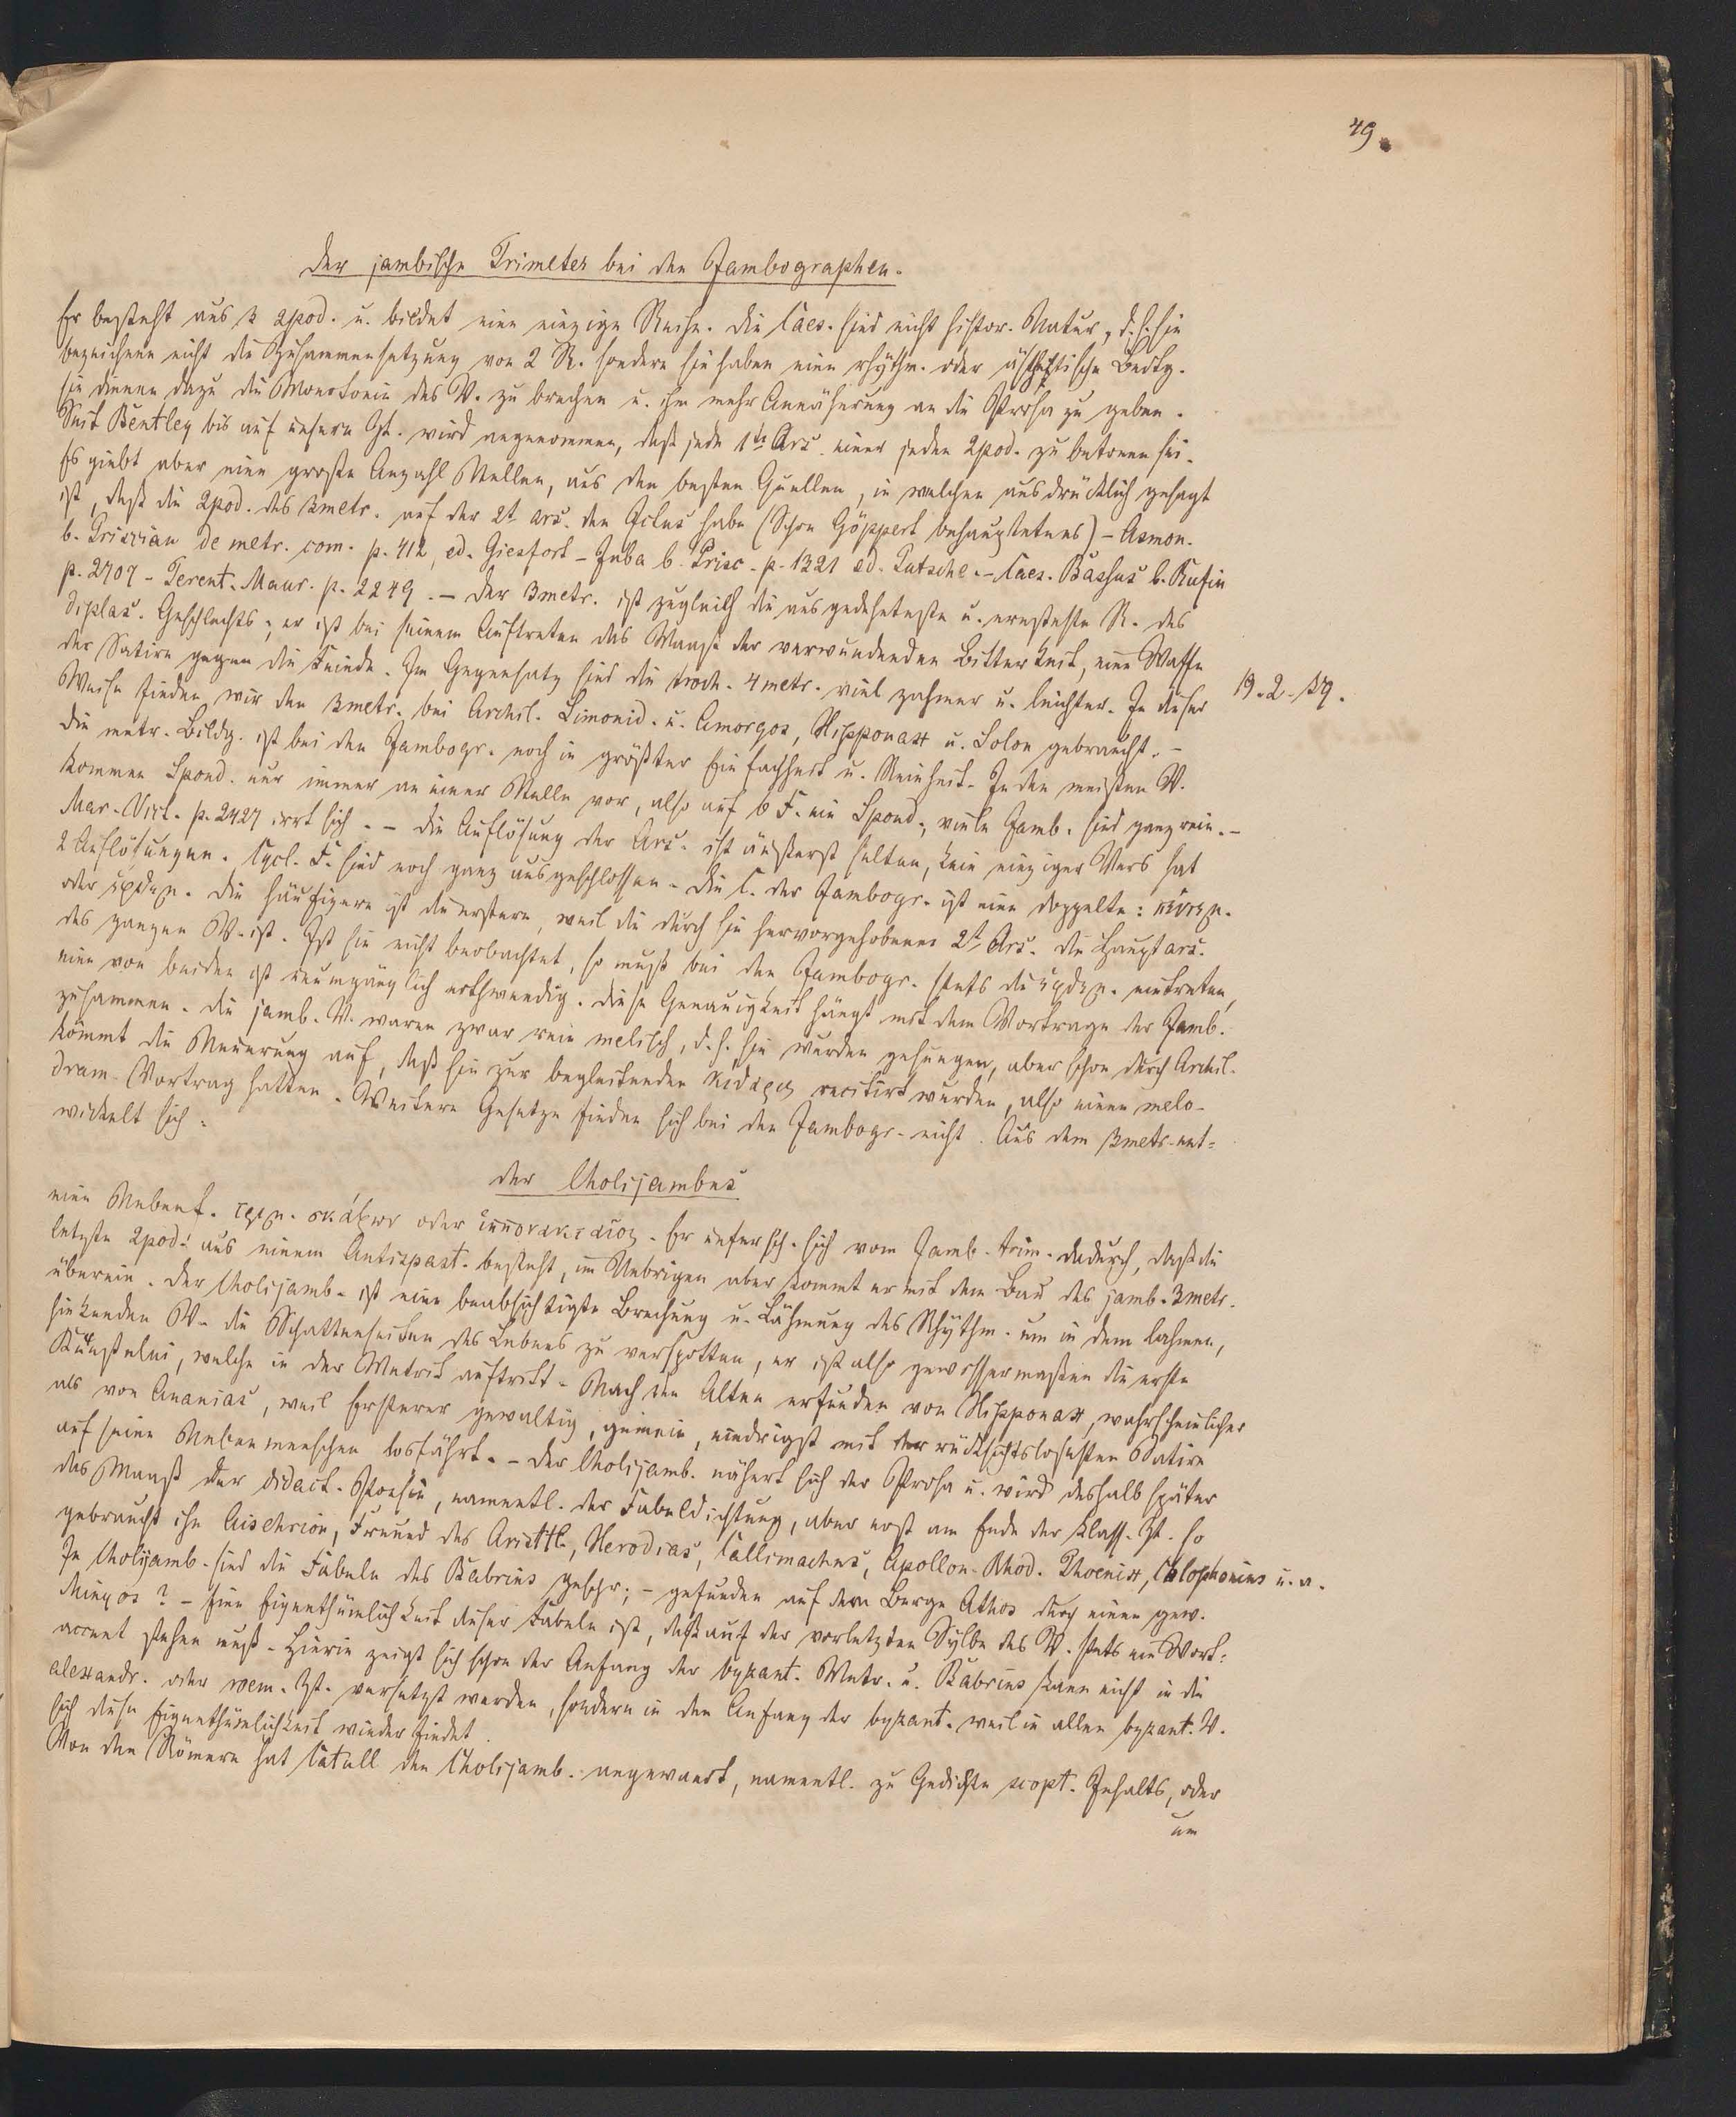 49.
Der jambische Trimeter bei den Jambographen.
Er besteht aus 3 2pod. u. bildet eine einzige Reihe. Die Caes. sind nicht histor. Natur, d. h. sie
bezeichnen nicht die Zusammensetzung von 2 R. sondern sie haben eine rhythm. oder ästhetische Bedtg.
sie dienen dazu die Monotonie des V. zu brechen u. ihm mehr Annäherung an die Prosa zu geben.
Seit Bentley bis auf unsere Zt. wird angenommen, daß jede 1te Ars. einer jeden 2pod. zu betonen sei.
Es giebt aber eine große Anzahl Stellen, aus den besten Quellen, in welchen ausdrücklich gesagt
ist, daß die 2pod. des 3metr. auf der 2t. ars. den Ictus habe (Schon Göppert behauptete es) – Asmon.
b. Priscian de metr. com. p. 412, ed. Giesfort – Juba b. Prisc. p. 1321 ed. Putsche. – Caes. Bassus b. Rufin
p. 2707 – Terent. Maur. p. 2249. – Der 3metr. ist zugleich die ausgedehnteste u. ernsteste R. des
diplas. Geschlechts; er ist bei seinem Auftreten das Maaß der verwundenden Bitterkeit, eine Waffe
der Satire gegen die Feinde. Im Gegensatz sind die troch. 4metr. viel zahmer u. leichter. In dieser
19. 2. 59.
Weise finden wir den 3metr. bei Archil. Simonid. u. Amorgos, Hipponax u. Solon gebraucht. –
Die metr. Bildg. ist bei den Jambogr. noch in größter Einfachheit u. Reinheit. In den meisten V.
kommen Spond. nur immer an einer Stelle vor, also auf 6 F. ein Spond., viele Jamb. sind ganz rein. –
Mar. Vict. p. 2427 irrt sich. – Die Auflösung der Ars. ist äußerst selten, kein einziger Vers hat
2 Auflösungen. Cycl. F. sind noch ganz ausgeschlossen. Die C. der Jambogr. ist eine doppelte: πενθημ.
oder ἑφθημ. Die häufigere ist die erstere, weil die durch sie hervorgehobene 2t. Ars. die Hauptars.
des ganzen V. ist. Ist sie nicht beobachtet, so muß bei den Jambogr. stets die ἑφθημ. eintreten,
eine von beiden ist unumgänglich nothwendig. Diese Genauigkeit hängt mit dem Vortrage der Jamb.
zusammen. Die jamb. V. waren zwar rein melisch, d. h. sie wurden gesungen, aber schon durch Archil.
kömmt die Neuerung auf, daß sie zur begleitenden κιθάρα recitirt wurden, also einen melo-
dram. Vortrag hatten. Weitere Gesetze finden sich bei den Jambogr. nicht. Aus dem 3metr. ent=
wickelt sich:
der Choljambus
eine Nebenf. τριμ. σκάζων oder ἱππονακτεῖος. Er untersch. sich vom Jamb. trim. dadurch, daß die
letzte 2pod. aus einem Antispast. besteht, im Uebrigen aber kommt er mit dem Bau des jamb. 3metr.
überein. Der Choljamb. ist eine beabsichtigte Brechung u. Lähmung des Rhythm. um in dem lahmen,
hinkenden V. die Schattenseiten des Lebens zu verspotten, er ist also gewissermaßen die erste
Künstelei, welche in der Metrik auftritt. Nach den Alten erfunden von Hipponax, wahrscheinlicher
als von Ananias, weil Ersterer gewaltig, gemein, niedrigst mit der rücksichtslosesten Satire
auf seine Nebenmenschen losfährt. – Der Choljamb. nähert sich der Prosa u. wird deshalb später
das Maaß der didact. Poesie, namentl. der Fabeldichtung, aber erst am Ende der klass. Zt. so
gebraucht ihn Aischrion, Freund des Aristtl., Herodias, Callimachus, Apollon. Rhod. Phoenix, Colophonius u. a.
In Choljamb. sind die Fabeln des Babrius geschr.; – gefunden auf dem Berge Athos durch einen gew.
Minyos? – Eine Eigenthümlichkeit dieser Fabeln ist, daß auf der vorletzten Sylbe des V. stets ein Wort=
accent stehen muß. Hierin zeigt sich schon der Anfang der byzant. Metr. u. Babrius kann nicht in die
alexandr. oder roem. Zt. versetzt werden, sondern in den Anfang der byzant. weil in allen byzant. V.
sich diese Eigenthümlichkeit wieder findet.
Von den Römern hat Catull den Choljamb. angewandt, namentl. zu Gedichten scopt. Inhalts, oder
um